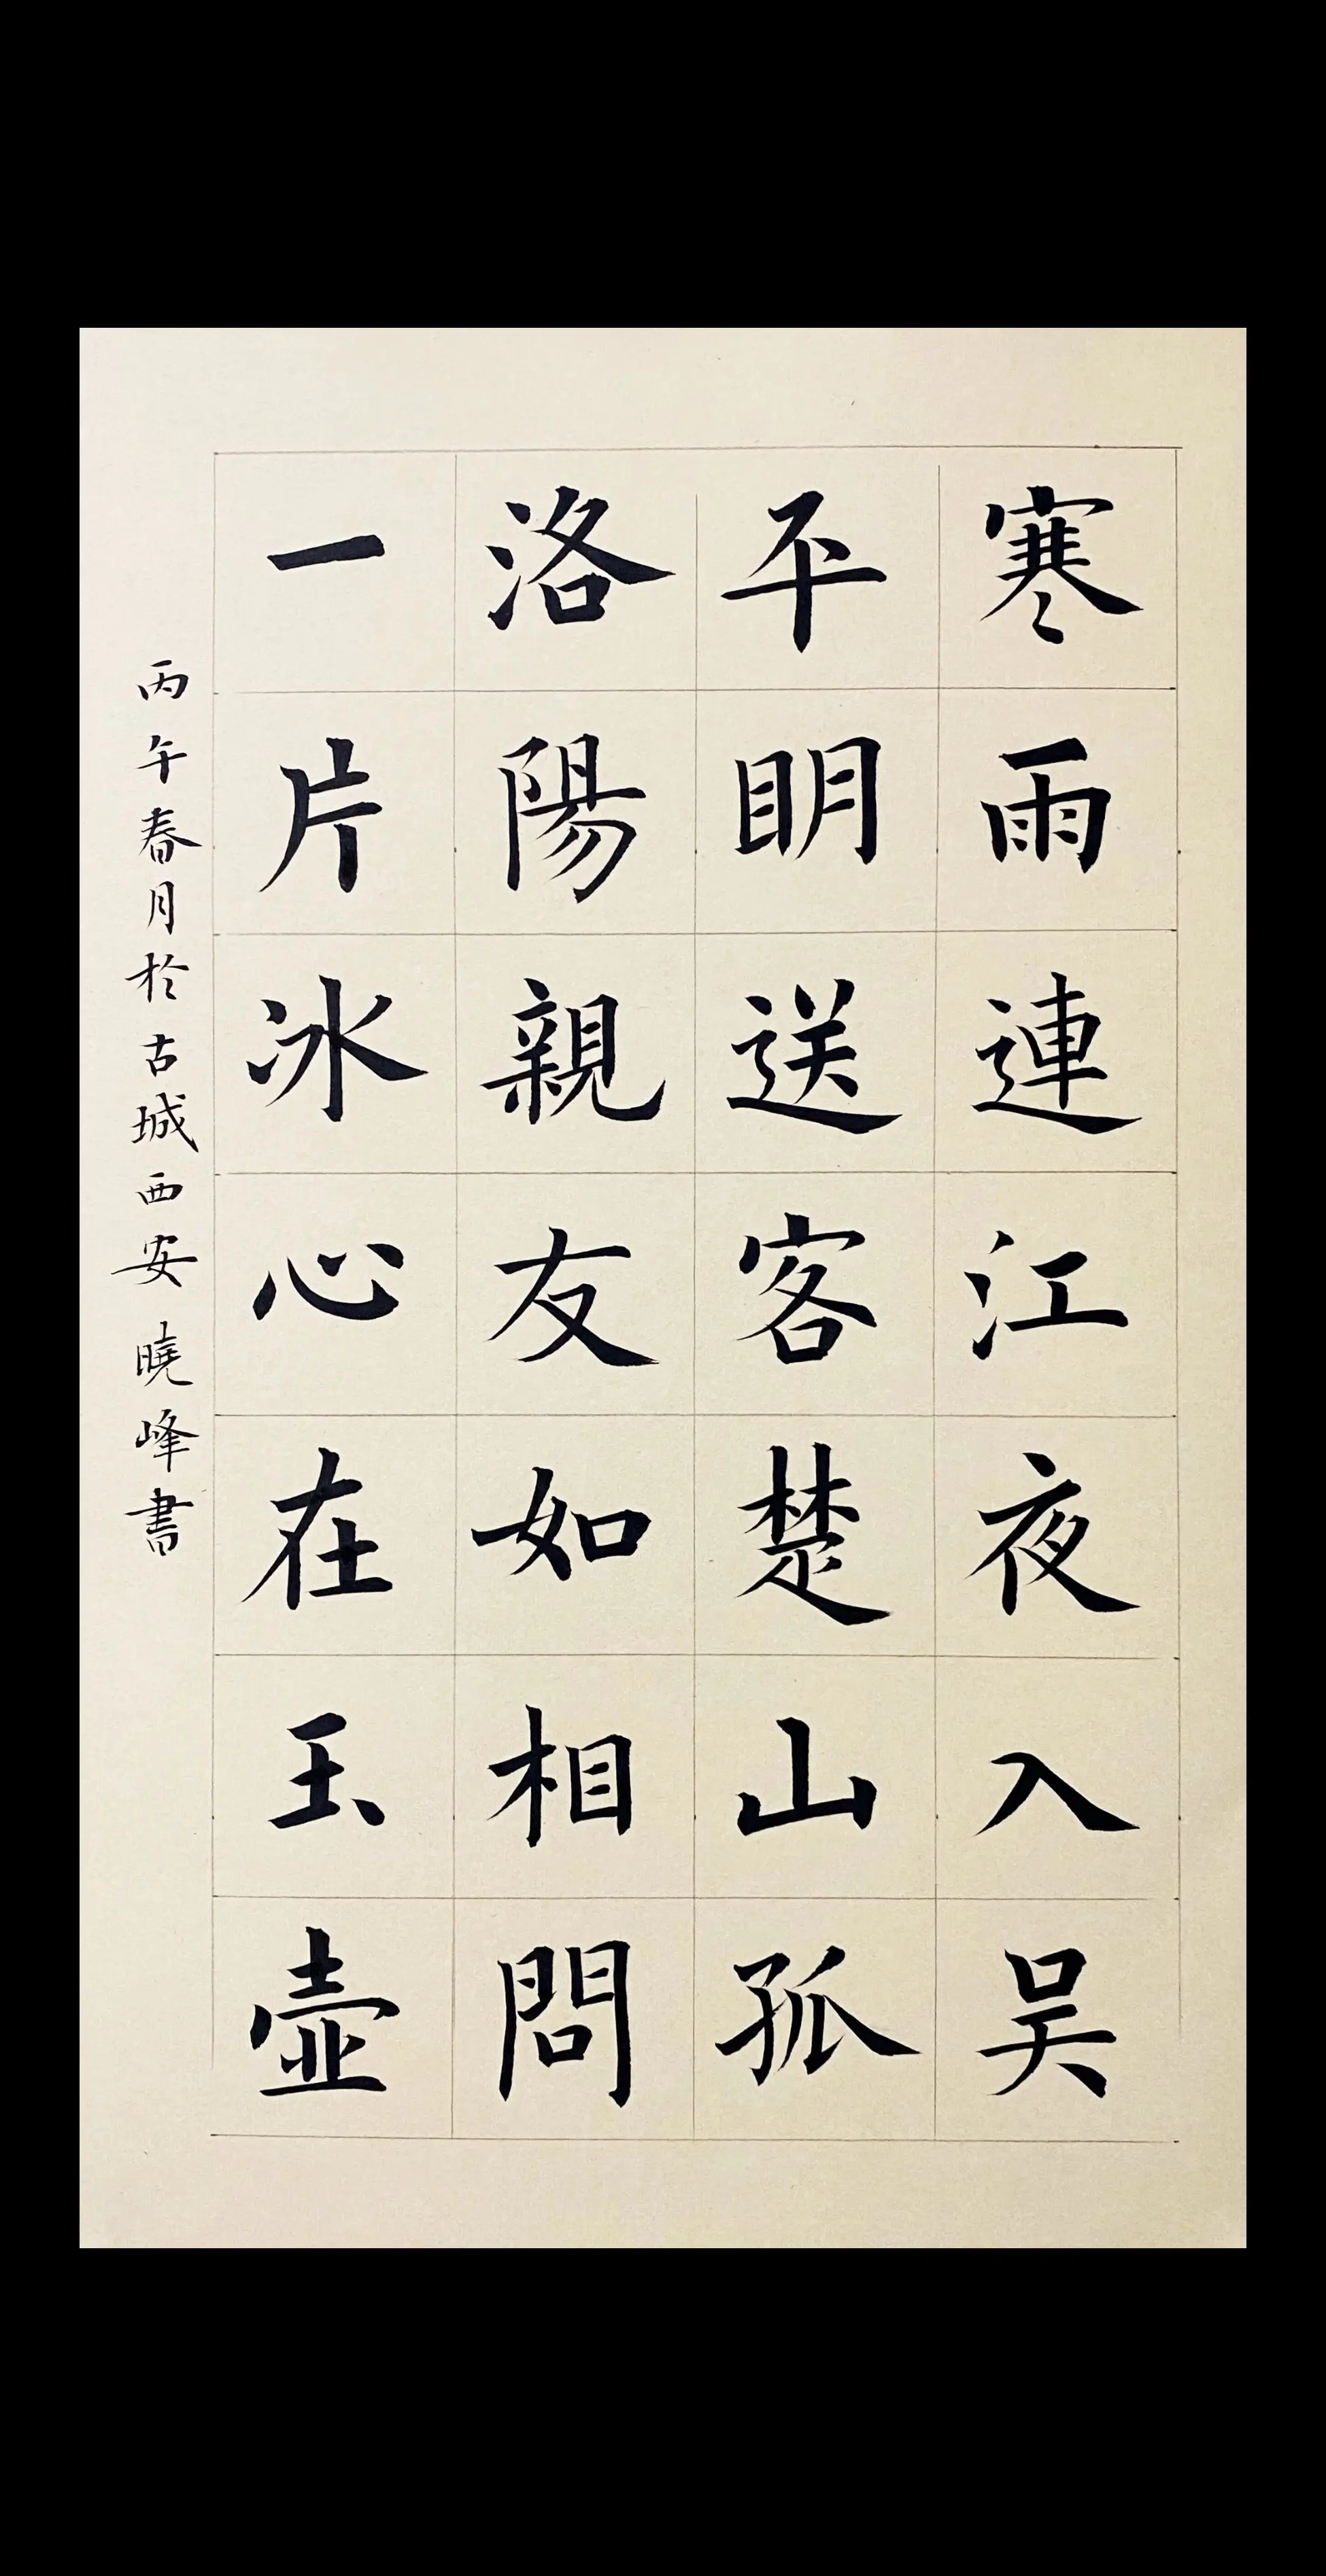 寒雨連江夜入吴
平明送客楚山孤
洛陽親友如相問
一片冰心在玉壺
丙午春月於古城西安 曉峰書